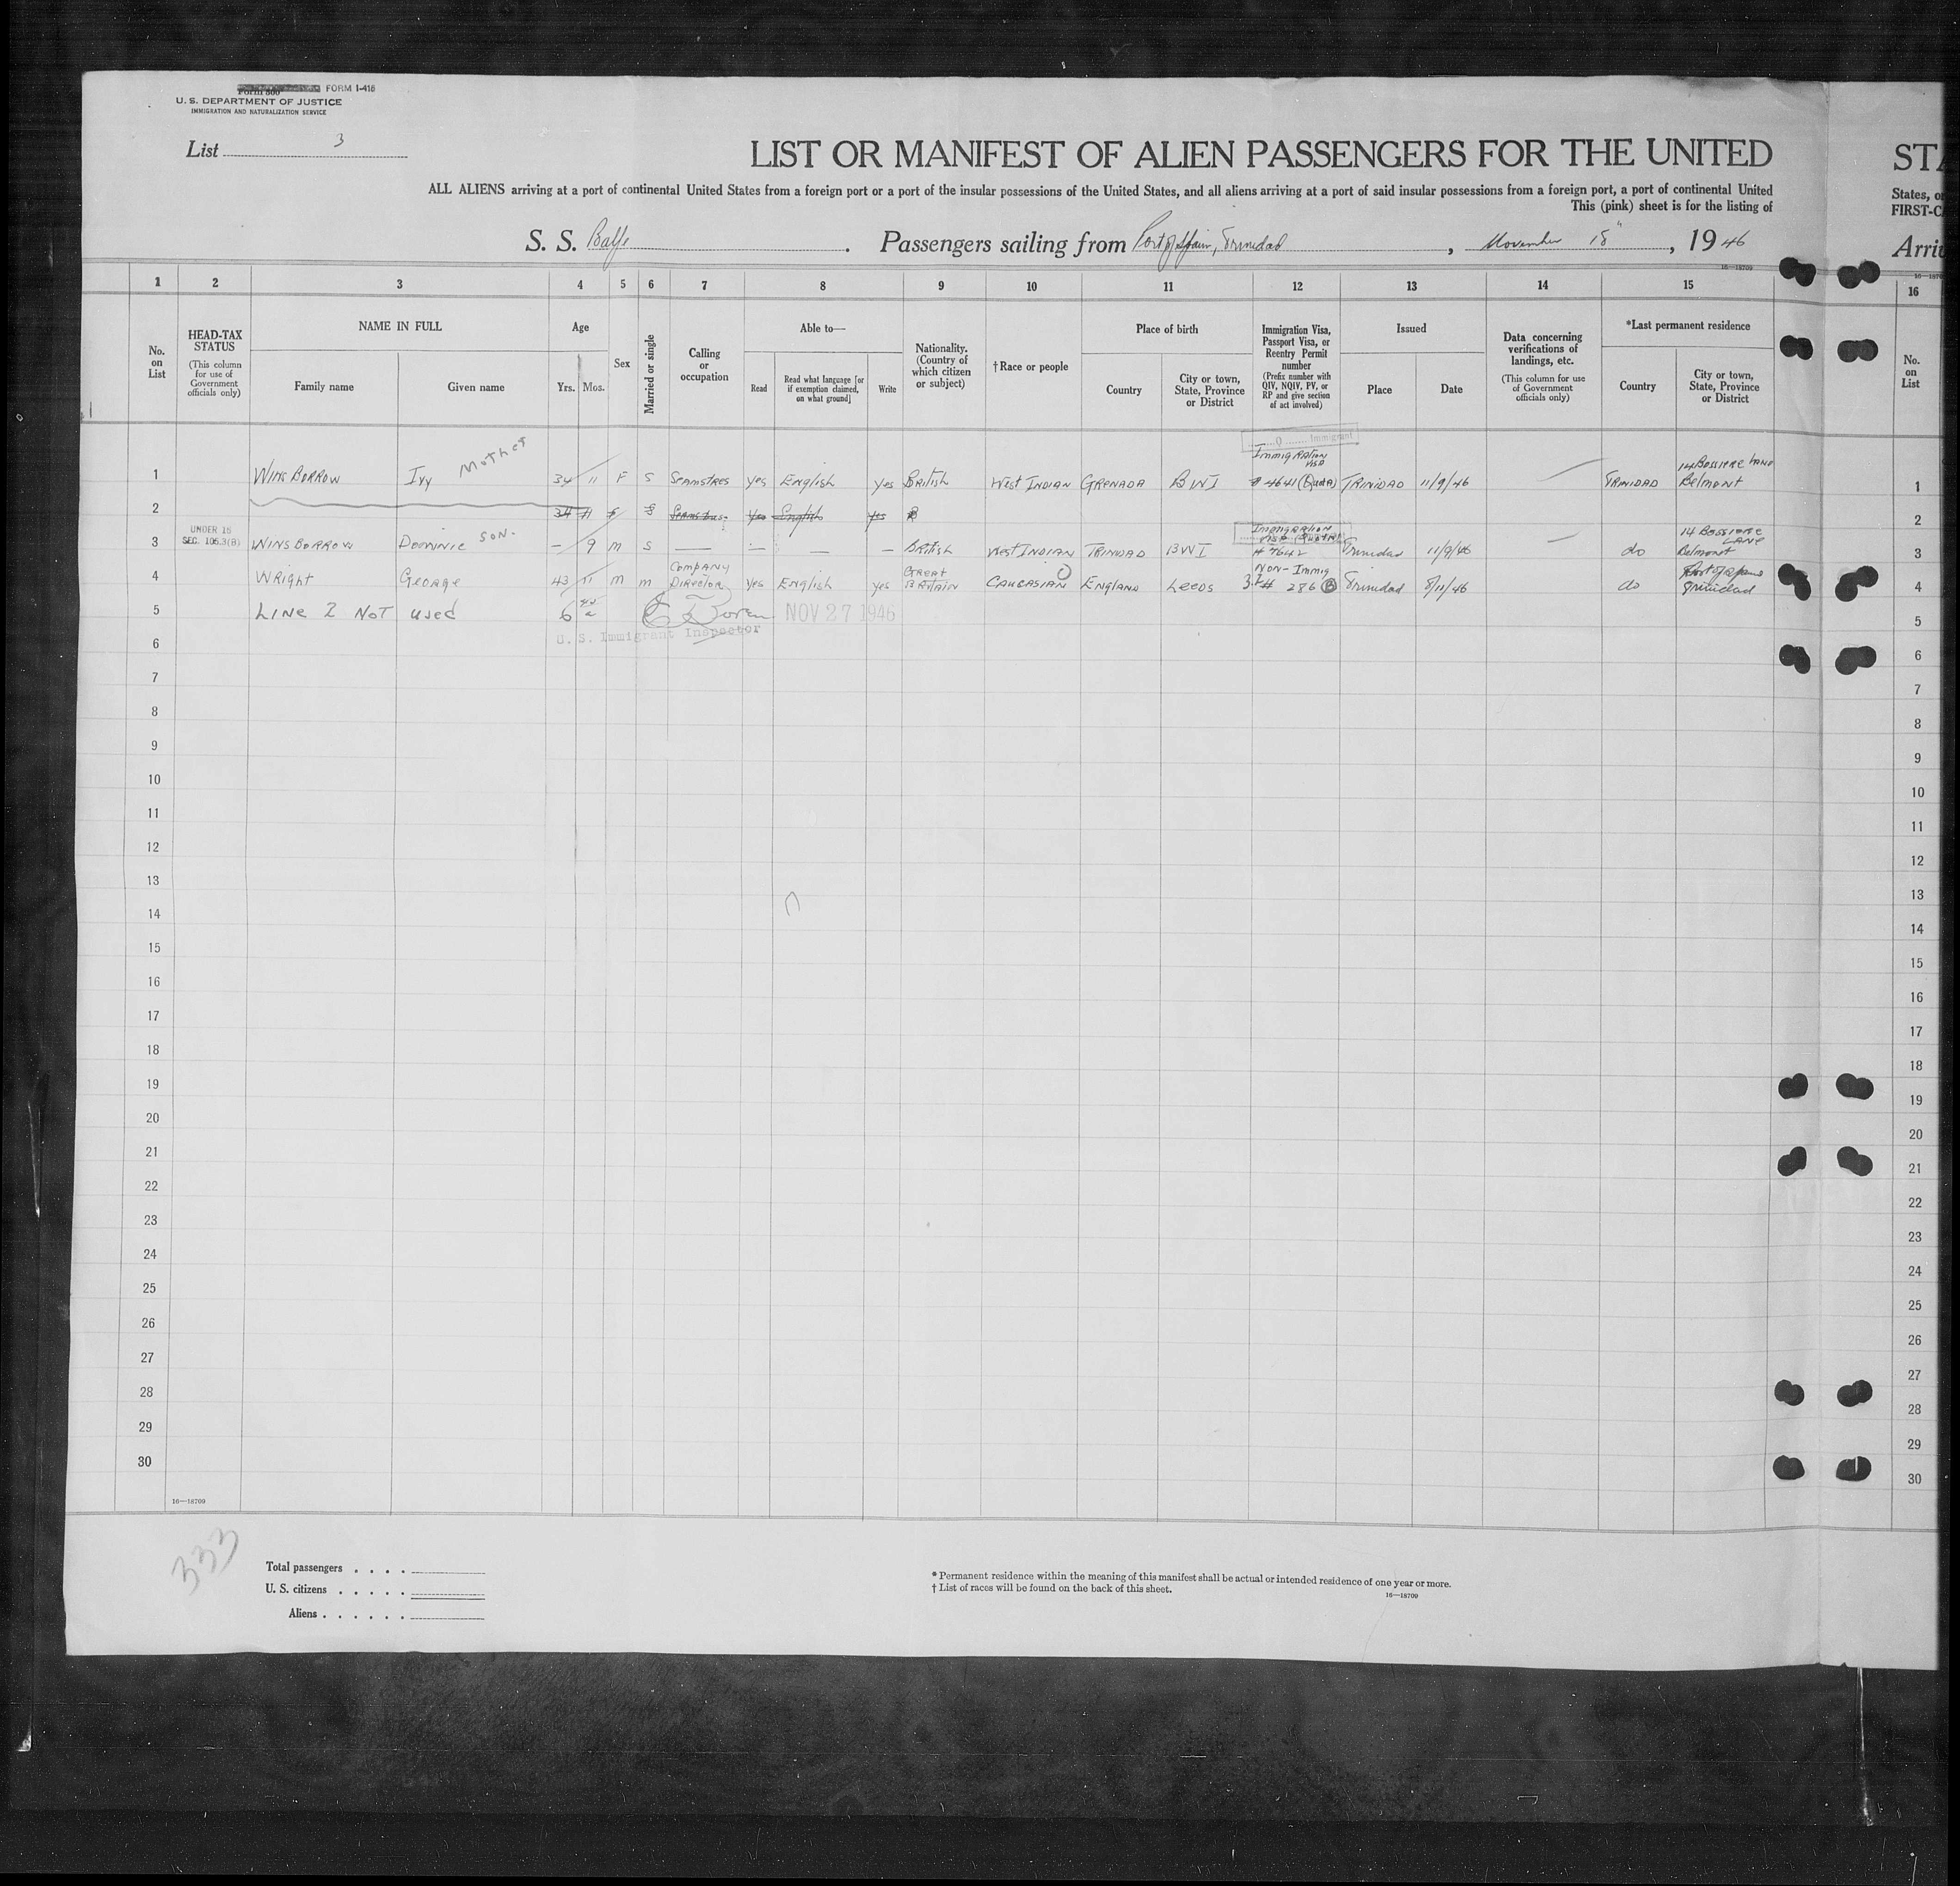 Form 500 FORM I-416
U. S. DEPARTMENT OF JUSTICE
IMMIGRATION AND NATURALIZATION SERVICE
List 3
LIST OR MANIFEST OF ALIEN PASSENGERS FOR THE UNITED
STA
ALL ALIENS arriving at a port of continental United States from a foreign port or a port of the insular possessions of the United States, and all aliens arriving at a port of said insular possessions from a foreign port, a port of continental United
States, o
This (pink) sheet is for the listing of
FIRST-C
S. S. Balfe. Passengers sailing from Port of Spain, Trinidad, November 18", 1946
Arri
16—18709
1 2 3 4 5 6 7 8 9 10 11 12 13 14 15 16
No. on List
HEAD-TAX STATUS (This column for use of Government officials only)
NAME IN FULL
Family name Given name
Age
Yrs. Mos.
Sex
Married or single
Calling or occupation
Able to—
Read Read what language [or if exemption claimed, on what ground] Write
Nationality. (Country of which citizen or subject)
†Race or people
Place of birth
Country City or town, State, Province or District
Immigration Visa, Passport Visa, or Reentry Permit number (Prefix number with QIV, NQIV, PV, or RP and give section of act involved)
Issued
Place Date
Data concerning verifications of landings, etc. (This column for use of Government officials only)
*Last permanent residence
Country City or town, State, Province or District
No. on List
Q Immigrant
1 WINSBORROW Ivy Mother 34 11 F S Seamstres yes English yes British West INDIAN GRENADA BWI Immigration Visa # 4641 (Quota) TRINIDAD 11/9/46 TRINIDAD 14 Bossiere Lane Belmont 1
2 34 11 F S Seamstres yes English yes B 2
UNDER 16 SEC. 106.3(B)
3 WINSBORROW Dominic Son. - 9 m S — — — — British West INDIAN TRINIDAD BWI Immigration Visa (Quota) # 4642 Trinidad 11/9/46 do 14 Bossiere Lane Belmont 3
4 WRight George 43 11 m m Company Director yes English yes Great Britain CAUCASIAN ENGLAND Leeds Non-Immig 3.2 # 286 Trinidad 8/11/46 do Port of Spain Trinidad 4
5 LINE 2 NOT used NOV 27 1946 5
U. S. Immigrant Inspector
6 6
7 7
8 8
9 9
10 10
11 11
12 12
13 13
14 14
15 15
16 16
17 17
18 18
19 19
20 20
21 21
22 22
23 23
24 24
25 25
26 26
27 27
28 28
29 29
30 30
16—18709
333
Total passengers . . . .
U. S. citizens . . . . .
Aliens . . . . . .
* Permanent residence within the meaning of this manifest shall be actual or intended residence of one year or more.
† List of races will be found on the back of this sheet.
16—18709